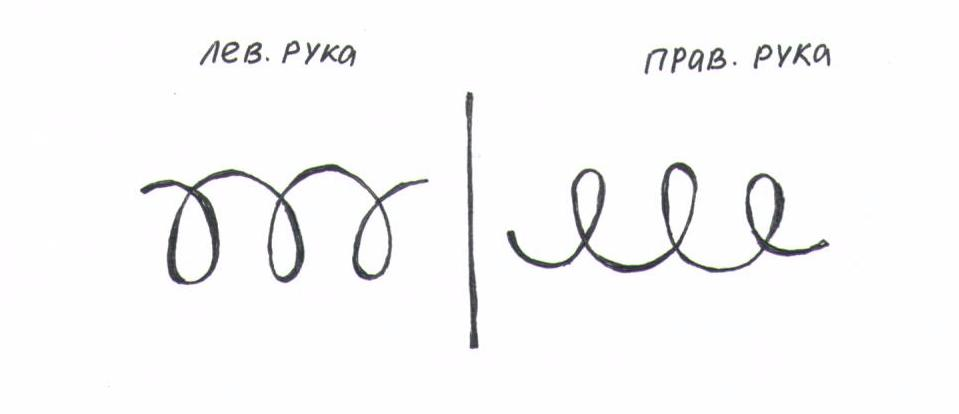 лев. рука
прав. рука